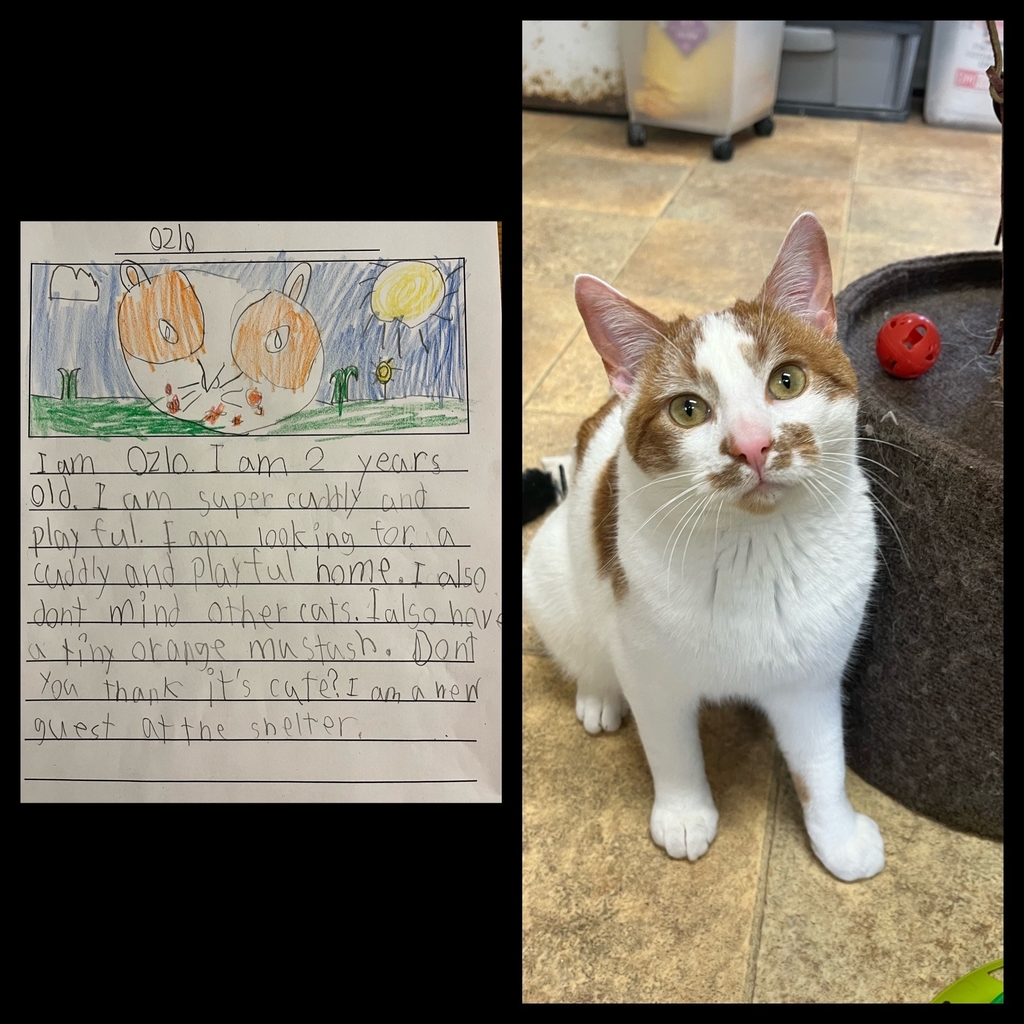 Ozlo
I am Ozlo. I am 2 years
old. I am super cuddly and
playful. I am looking for a
cuddly and playful home. I also
dont mind other cats. I also have
a tiny orange mustash. Dont
you thank it's cute? I am a new
guest at the shelter.